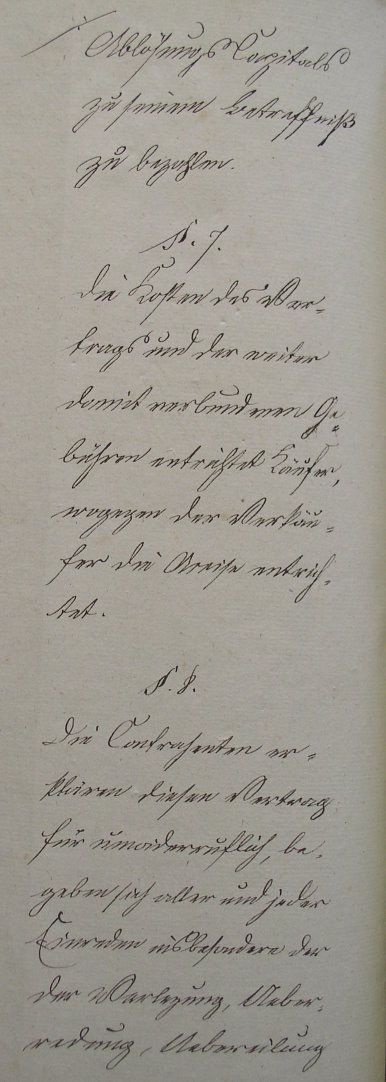 Ablösungs Capitals
zu seinem Betreffniß
zu bezahlen.
§. 7.
Die Kosten des Ver-
trags und der weiter
damit verbundenen Ge-
bühren entrichtet Käufer,
wogegen der Verkäu-
fer die Accise entrich-
tet.
§. 8.
Die Contrahenten er-
klären diesen Vertrag
für unwiderruflich, be-
geben sich aller und jeder
Einreden insbesondere der
der Verlezung, Ueber-
redung, Uebereilung